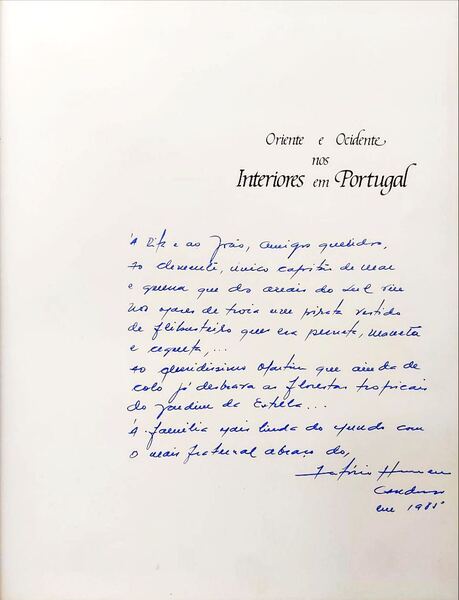 Oriente e Ocidente
nos
Interiores em Portugal
À Rita e ao João, amigos queridos,
Ao clemente, único capitão de mar
e guerra que dos areais do Sul viu
nos mares de troia um pirata vestido
de flibusteiro que era perneta, maneta
e cegueta,...
Ao queridíssimo que ainda de
colo já desbrava as florestas tropicais
do jardim da Estrela...
À família mais linda do mundo com
o mais fraternal abraço do,
em 1985